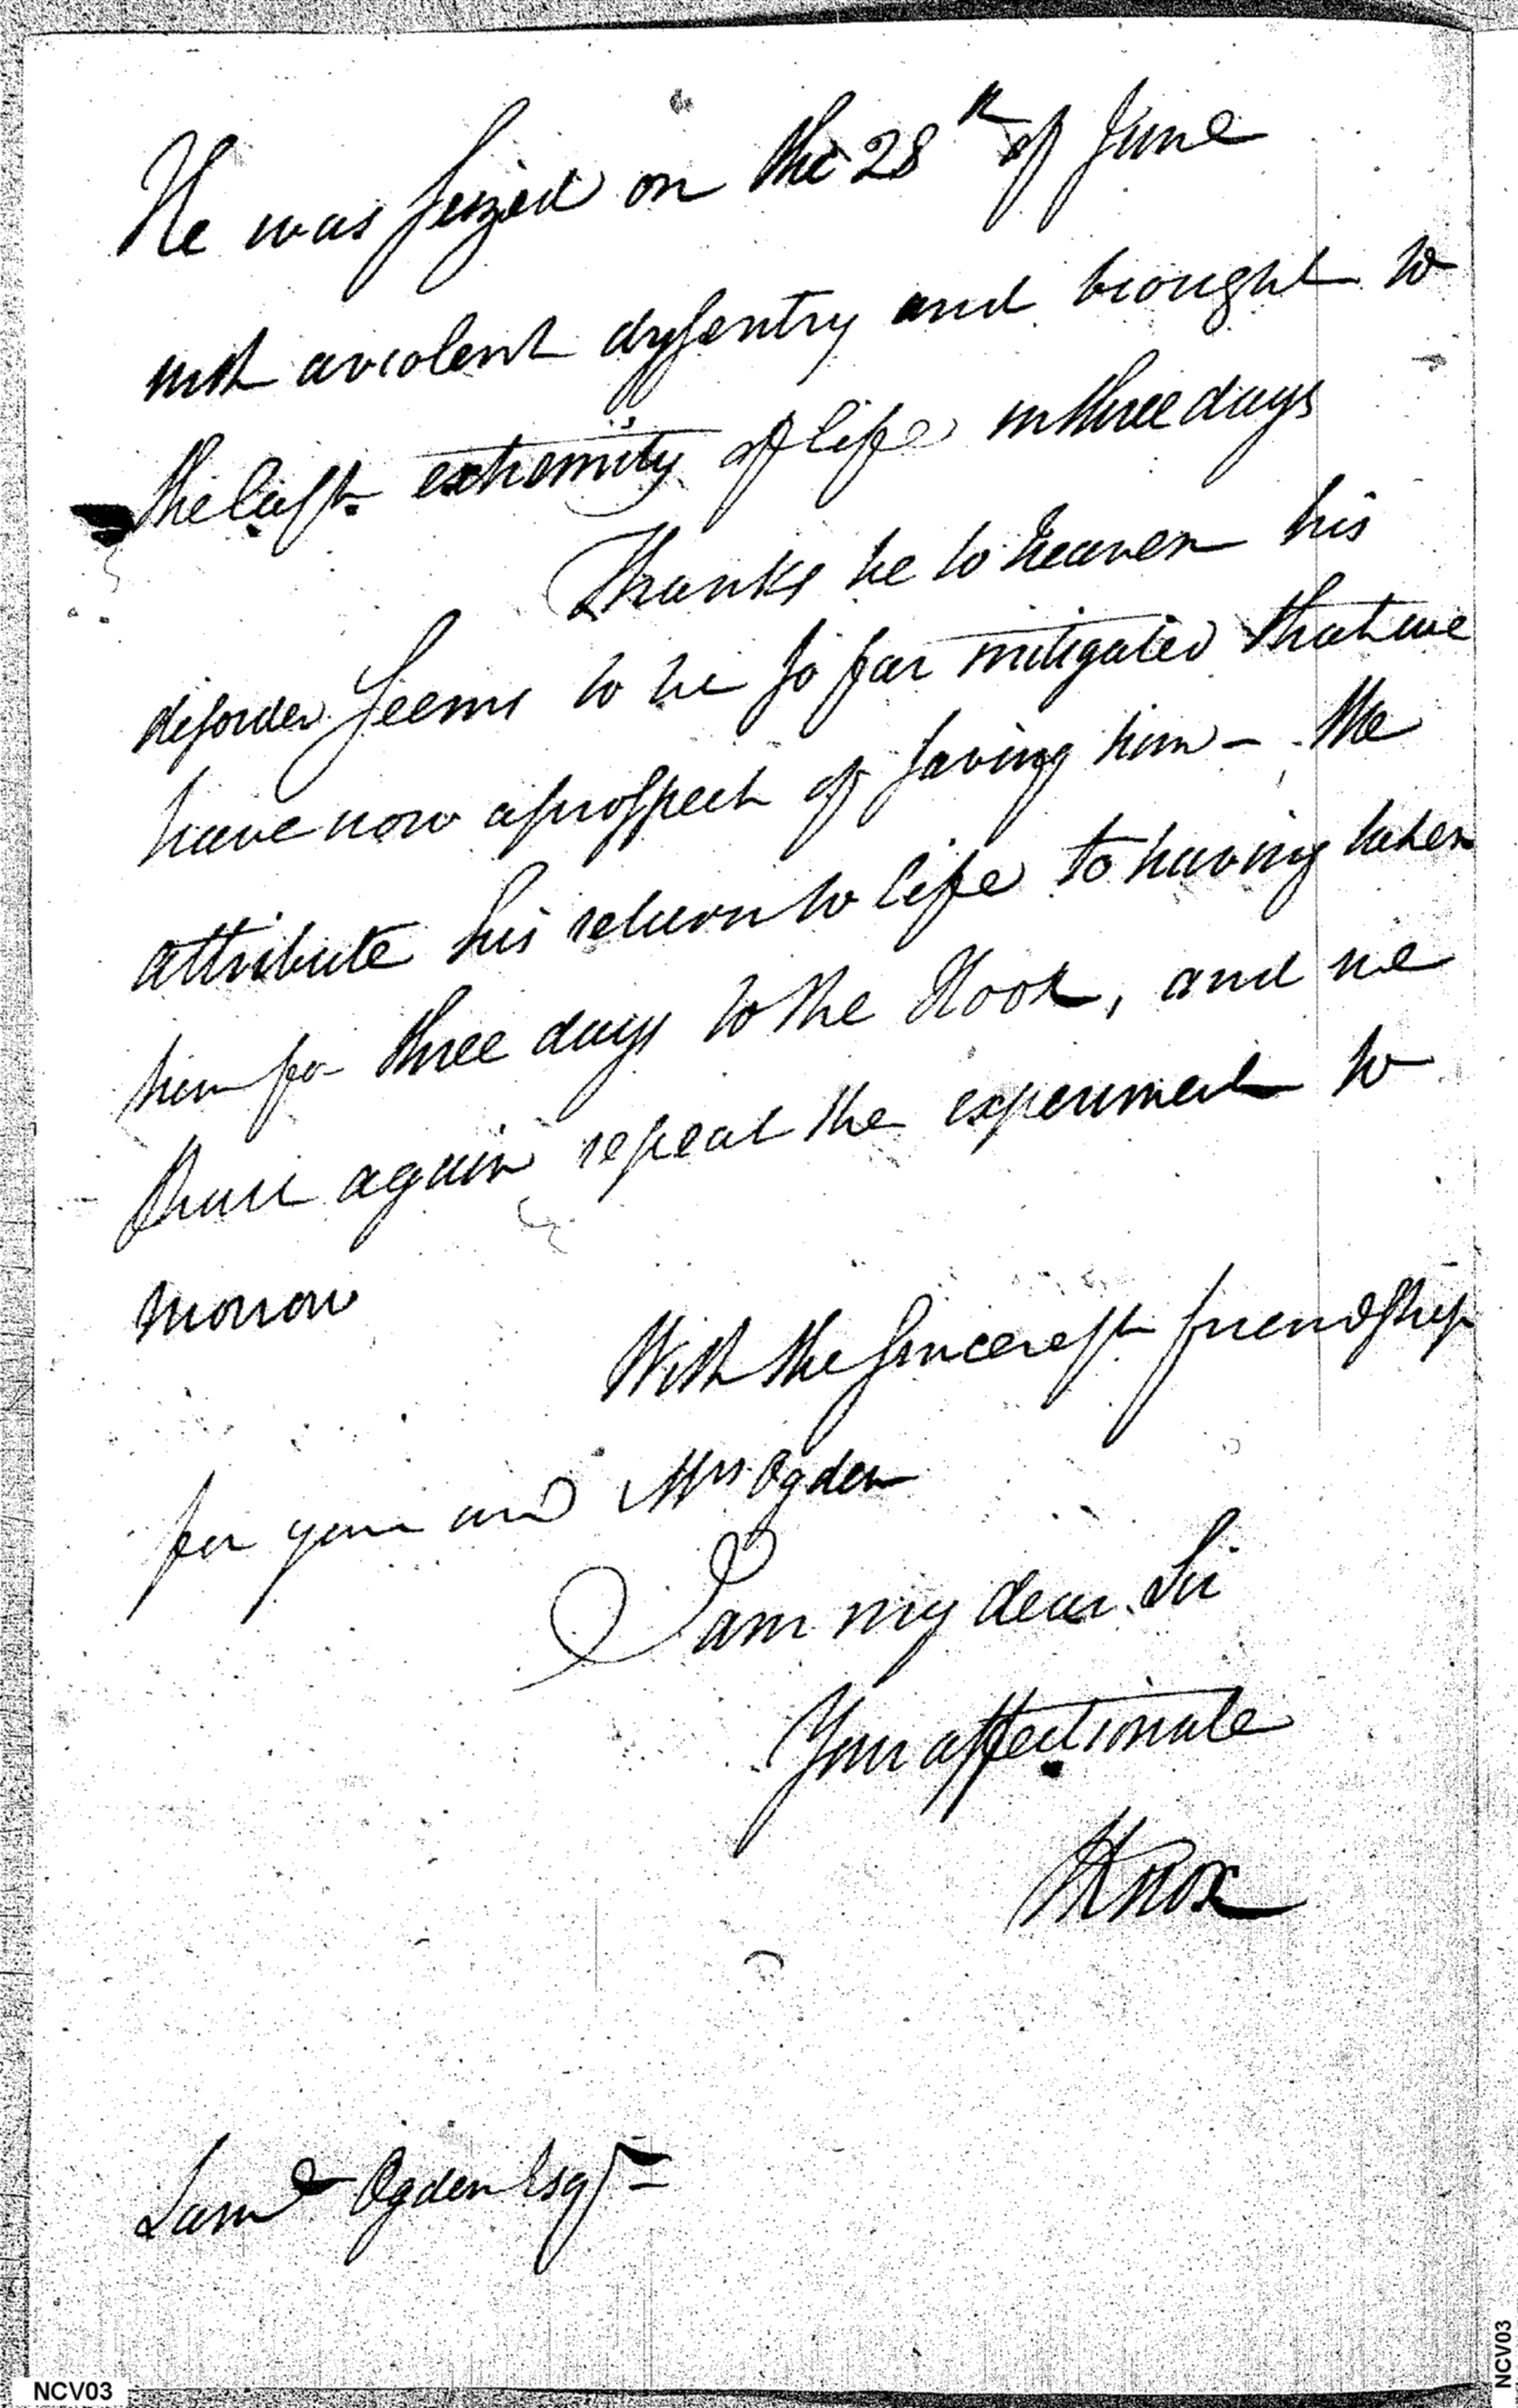 He was seized on the 28th of June
with a violent dysentry and brought to
the last extremity of life in three days
Thanks be to heaven his
disorder seems to be so far mitigated that we
have now a prospect of saving him - We
attribute his return to life to having taken
him for three days to the Hook, and we
shall again repeat the experiment to
morrow
With the sincerest friendship
for you and Mrs Ogden
I am my dear Sir
Your affectionate
HKnox
Saml Ogden Esqr
NCV03
NCV03